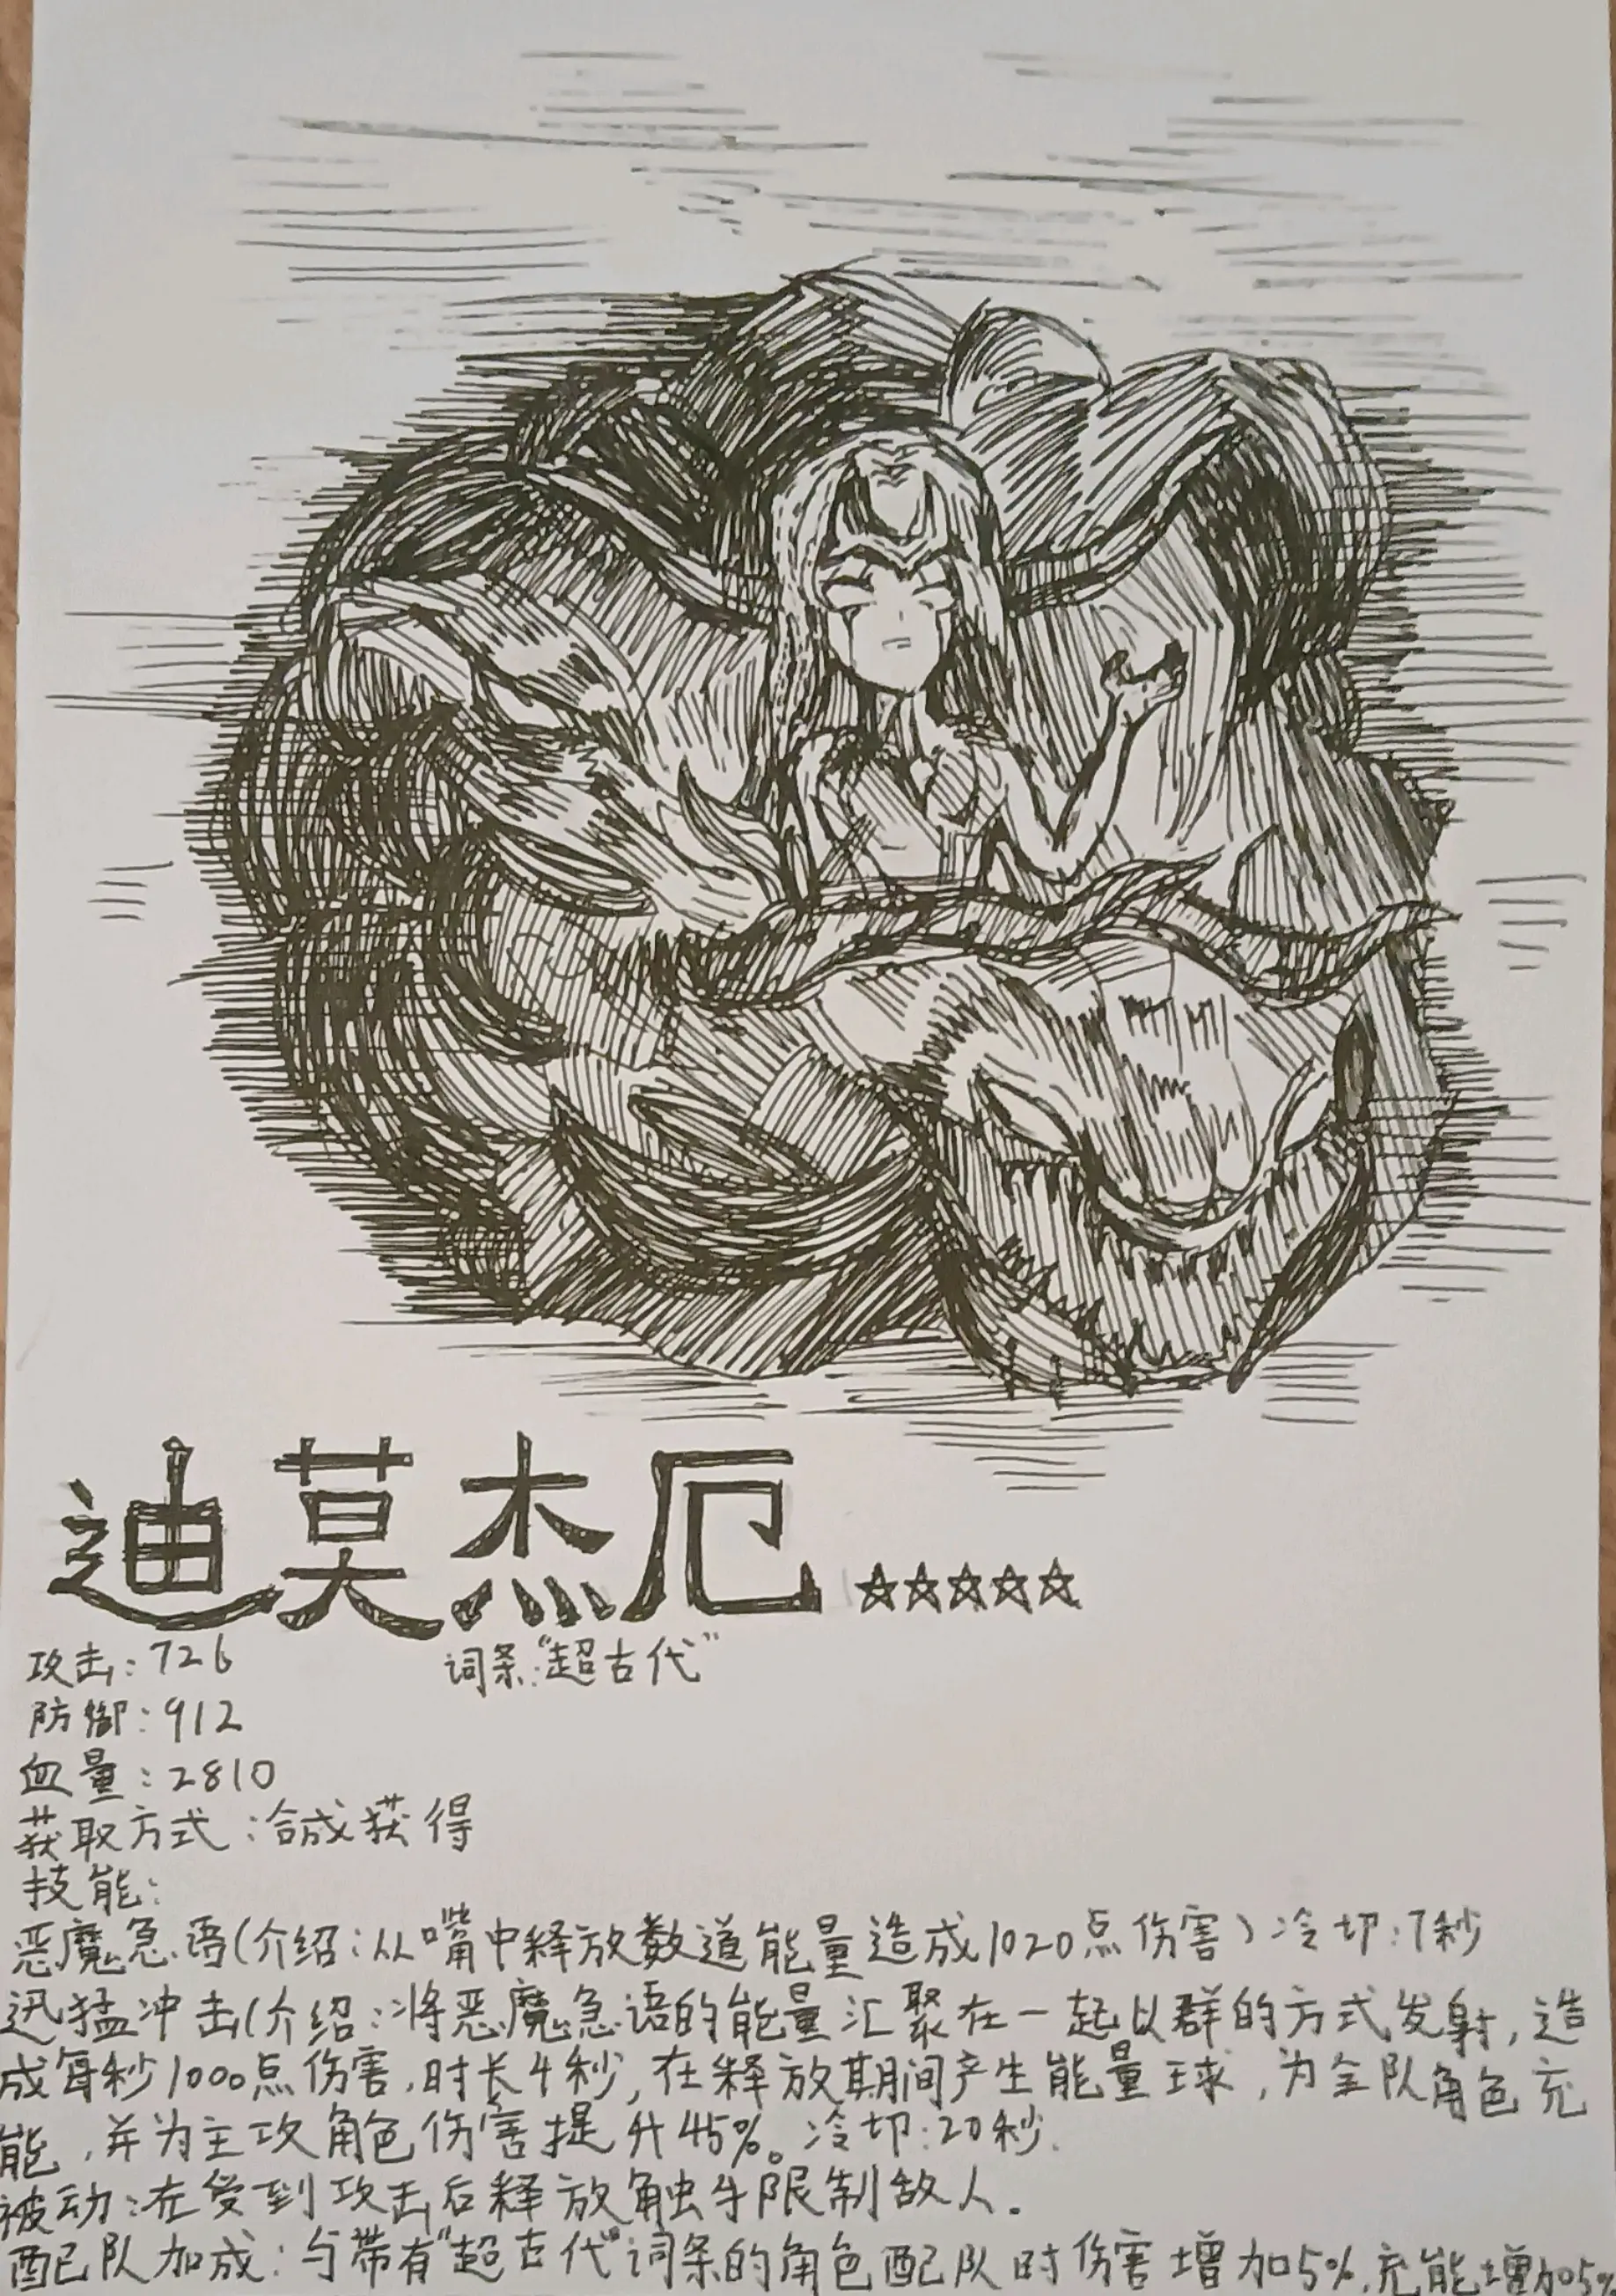 迪莫杰厄 ☆☆☆☆☆
攻击:726 词条:“超古代”
防御:912
血量:2810
获取方式:合成获得
技能:
恶魔急语(介绍:从嘴中释放数道能量造成1020点伤害)冷切:7秒
迅猛冲击(介绍:将恶魔急语的能量汇聚在一起以群的方式发射,造
成每秒1000点伤害,时长4秒,在释放期间产生能量球,为全队角色充
能,并为主攻角色伤害提升45%。冷切:20秒.
被动:在受到攻击后释放触手限制敌人.
配队加成:与带有“超古代”词条的角色配队时伤害增加5%,充能增加5%